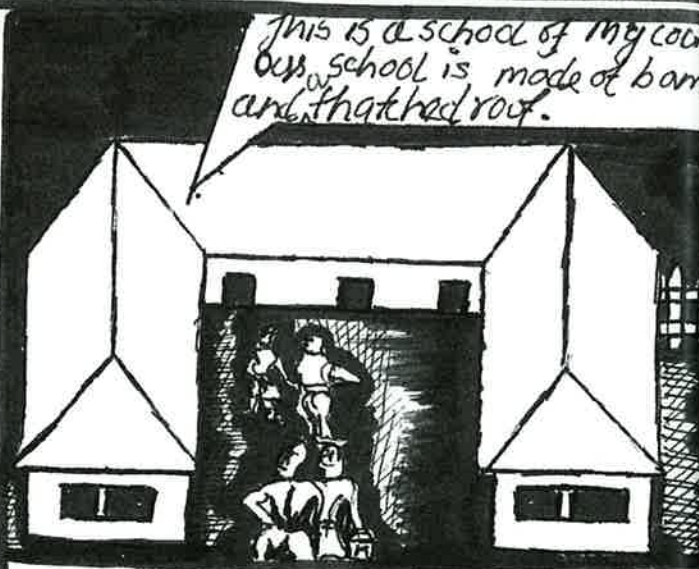 This is a school of my cou
Our school is made of bam
and a thatched roof.